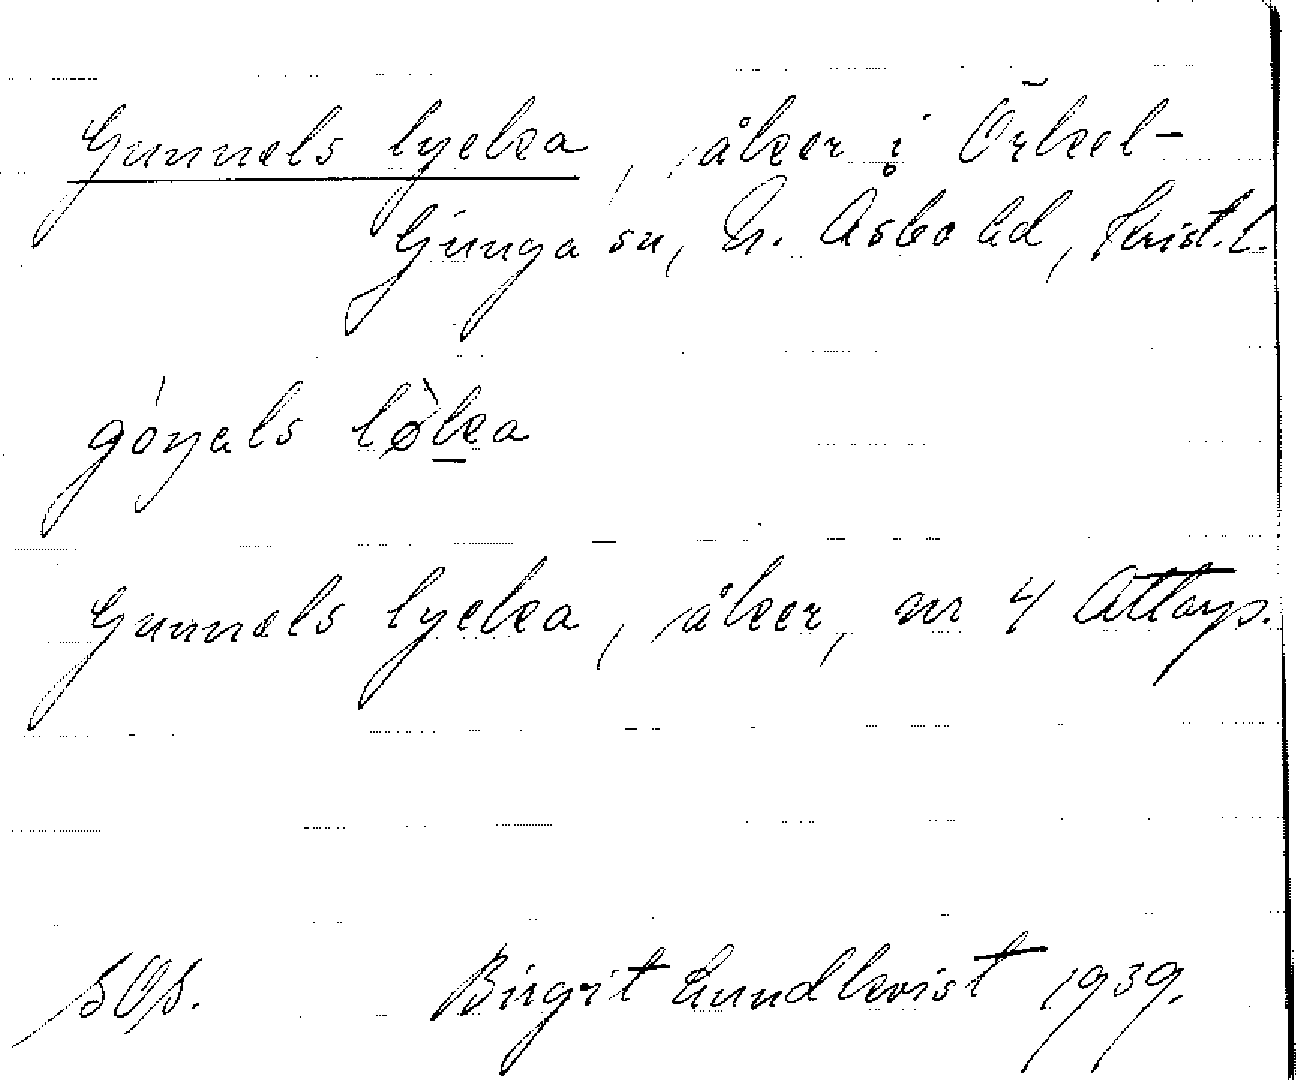 Gunnels lycka, åker i Örkel-
ljunga sn, N. Åsbo hd, Krist. l.
góŋals lø̀ka
Gunnels lycka, åker, nr 4 Attarp.
SOS. Birgit Lundkvist 1939.